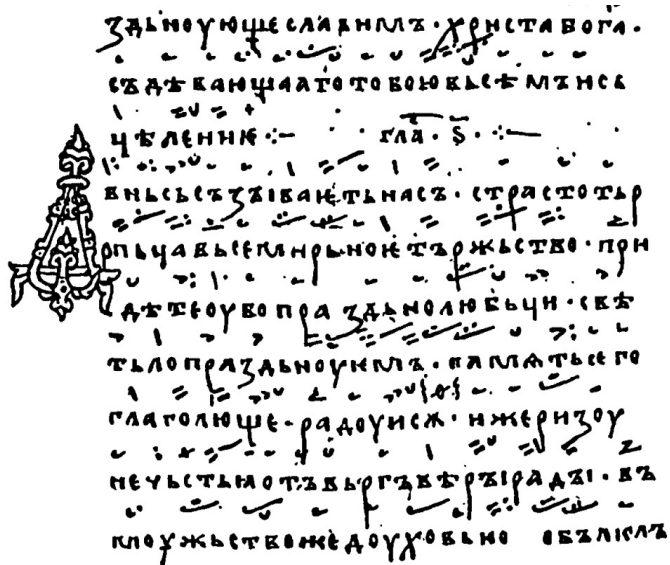 здьноующе славимъ · христа бога ·
съдѣвающааго тобою вьсѣмъ исц
цѣлениѥ :~ гла · ѕ · :—
Авньсь съзываѥть насъ · страстотьр
пьца вьсемирьноѥ тържьство · при
дѣте оубо праздьнолюбьци · свѣ
тьло праздьноуимъ · памѧть ѥго
глаголюще · радоуисѧ · иже ризоу
нечьстьѩ отъвьргъ вѣры ради · въ
моужьство же доуховьно облъклъ